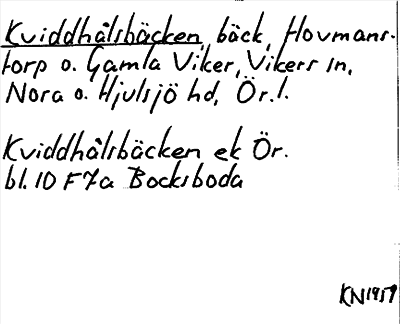 Kviddhålsbäcken, bäck, Hovmans-
torp o. Gamla Viker, Vikers sn,
Nora o. Hjulsjö hd, Ör. l.
Kviddhålsbäcken ek Ör.
bl. 10 F 7a Bocksboda
KN 1957